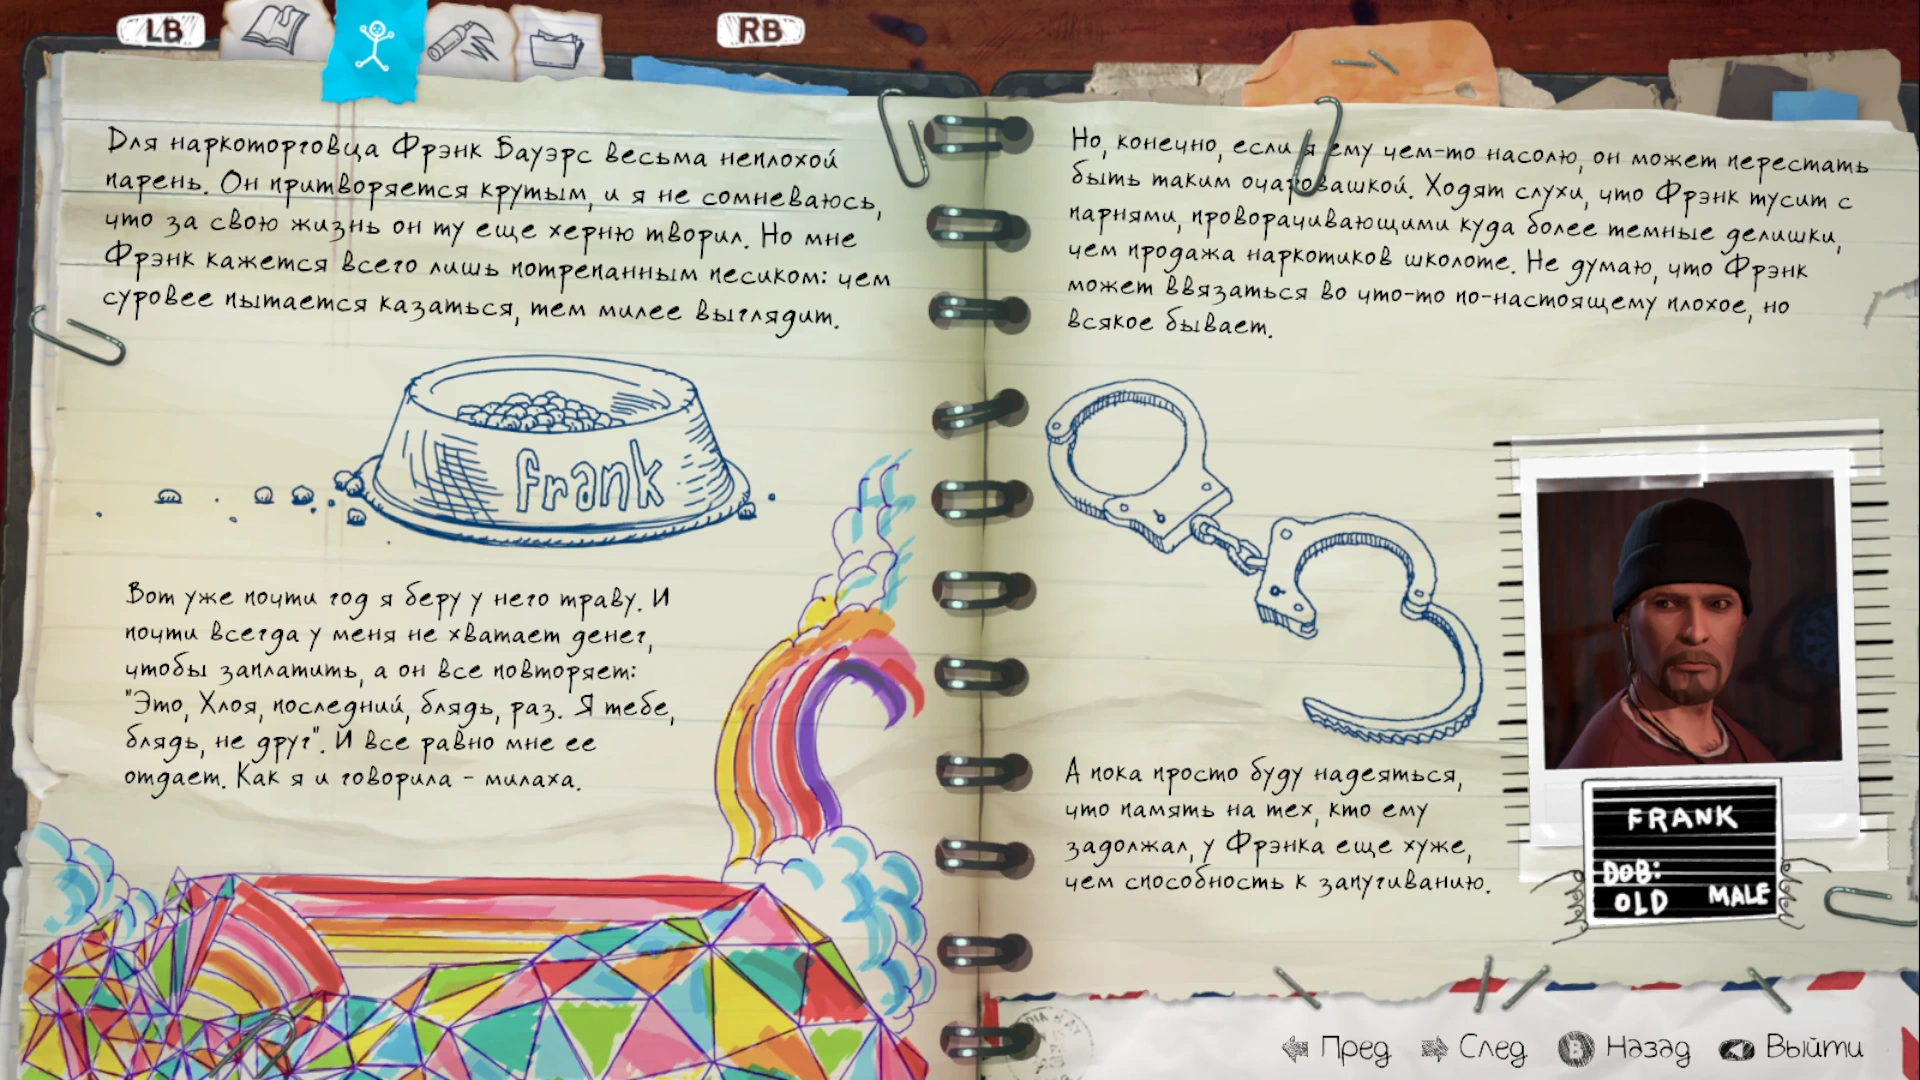 LB
RB
Для наркоторговца Фрэнк Бауэрс весьма неплохой
парень. Он притворяется крутым, и я не сомневаюсь,
что за свою жизнь он ту еще херню творил. Но мне
Фрэнк кажется всего лишь потрепанным песиком: чем
суровее пытается казаться, тем милее выглядит.
frank
Вот уже почти год я беру у него траву. И
почти всегда у меня не хватает денег,
чтобы заплатить, а он все повторяет:
"Это, Хлоя, последний, блядь, раз. Я тебе,
блядь, не друг". И все равно мне ее
отдает. Как я и говорила - милаха.
Но, конечно, если я ему чем-то насолю, он может перестать
быть таким очаровашкой. Ходят слухи, что Фрэнк тусит с
парнями, проворачивающими куда более темные делишки,
чем продажа наркотиков школоте. Не думаю, что Фрэнк
может ввязаться во что-то по-настоящему плохое, но
всякое бывает.
А пока просто буду надеяться,
что память на тех, кто ему
задолжал, у Фрэнка еще хуже,
чем способность к запугиванию.
FRANK
DOB:
OLD MALE
Пред След B Назад Выйти